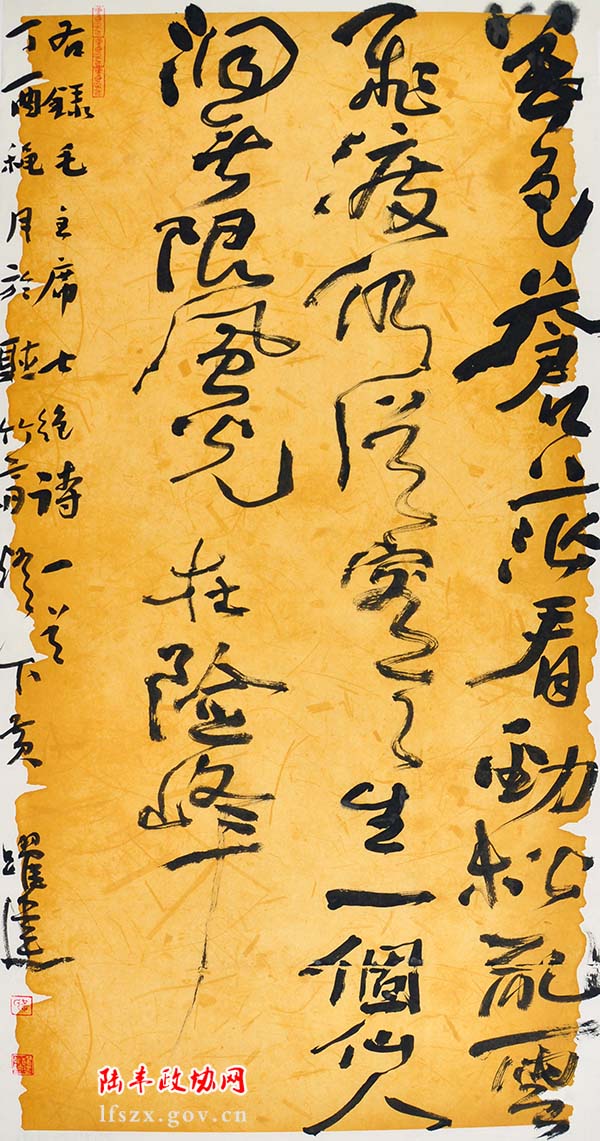 暮色蒼茫看勁松亂雲
飛渡仍從容天生一個仙人
洞無限風光在險峰
右錄毛主席七絕詩一首
丁酉穐月於聽竹齋燈下黄躍達
陆丰政协网
lfszx.gov.cn